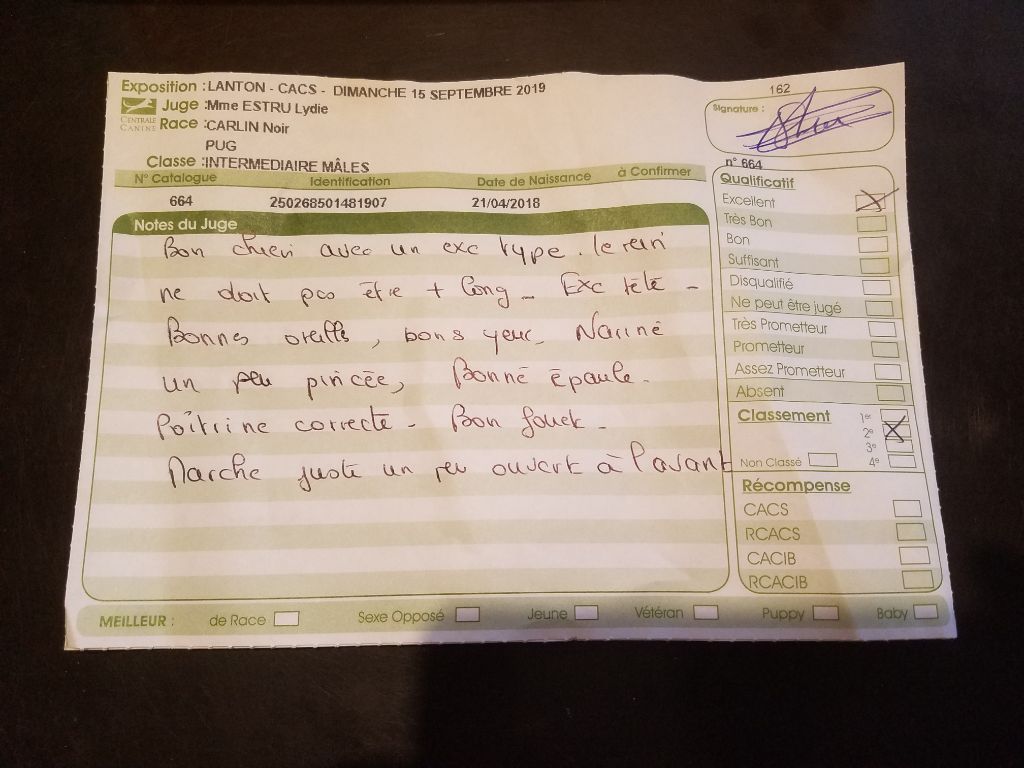 Exposition : LANTON - CACS - DIMANCHE 15 SEPTEMBRE 2019
162
CENTRALE CANINE
Juge : Mme ESTRU Lydie
Signature :
Race : CARLIN Noir
PUG
Classe : INTERMEDIAIRE MÂLES
n° 664
N° Catalogue Identification Date de Naissance à Confirmer
664 250268501481907 21/04/2018
Notes du Juge
Bon chien avec un exc type. le rein
ne doit pas être + long - Exc tête -
Bonnes oreilles, bons yeux, Narine
un peu pincée, Bonne épaule.
Poitrine correcte - Bon fouet -
Marche juste un peu ouvert à l'avant
Qualificatif
Excellent
Très Bon
Bon
Suffisant
Disqualifié
Ne peut être jugé
Très Prometteur
Prometteur
Assez Prometteur
Absent
Classement 1er
2e
3e
Non Classé 4e
Récompense
CACS
RCACS
CACIB
RCACIB
MEILLEUR : de Race Sexe Opposé Jeune Vétéran Puppy Baby